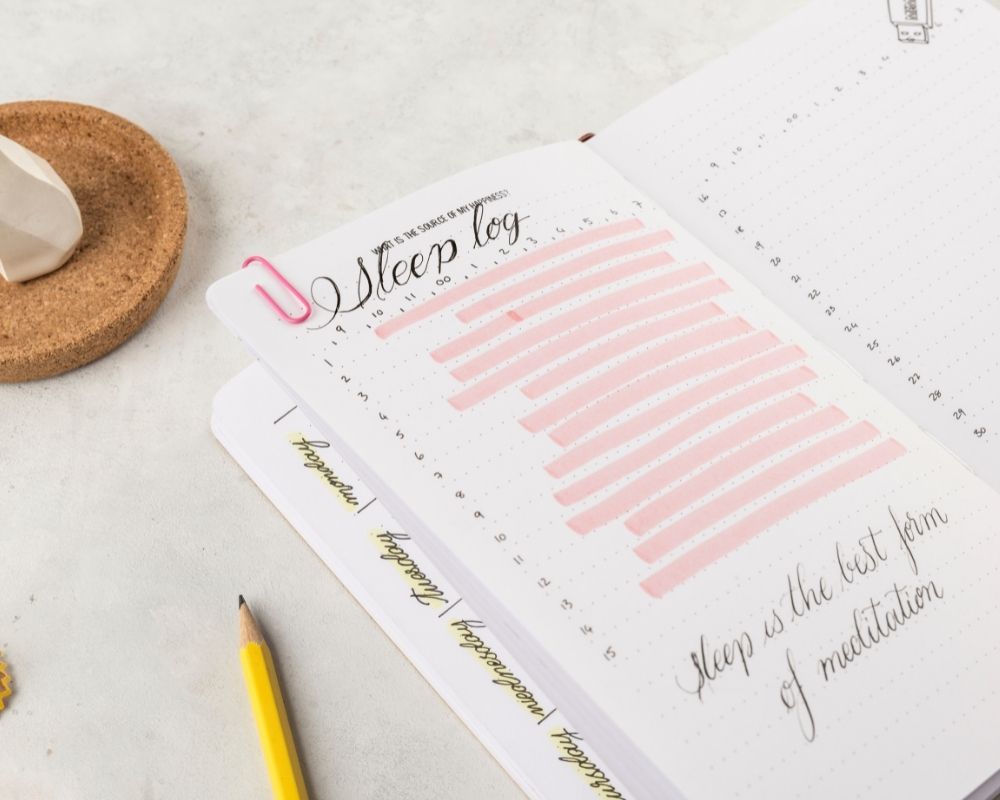 WHAT IS THE SOURCE OF MY HAPPINESS?
Sleep log
9 10 11 00 1 2 3 4 5 6 7
1
2
3
4
5
6
7
8
9
10
11
12
13
14
15
sleep is the best form
of meditation
monday
Tuesday
wednesday
9 10 11 00 1 2 3 4
16
17
18
19
20
21
22
23
24
25
26
27
28
29
30